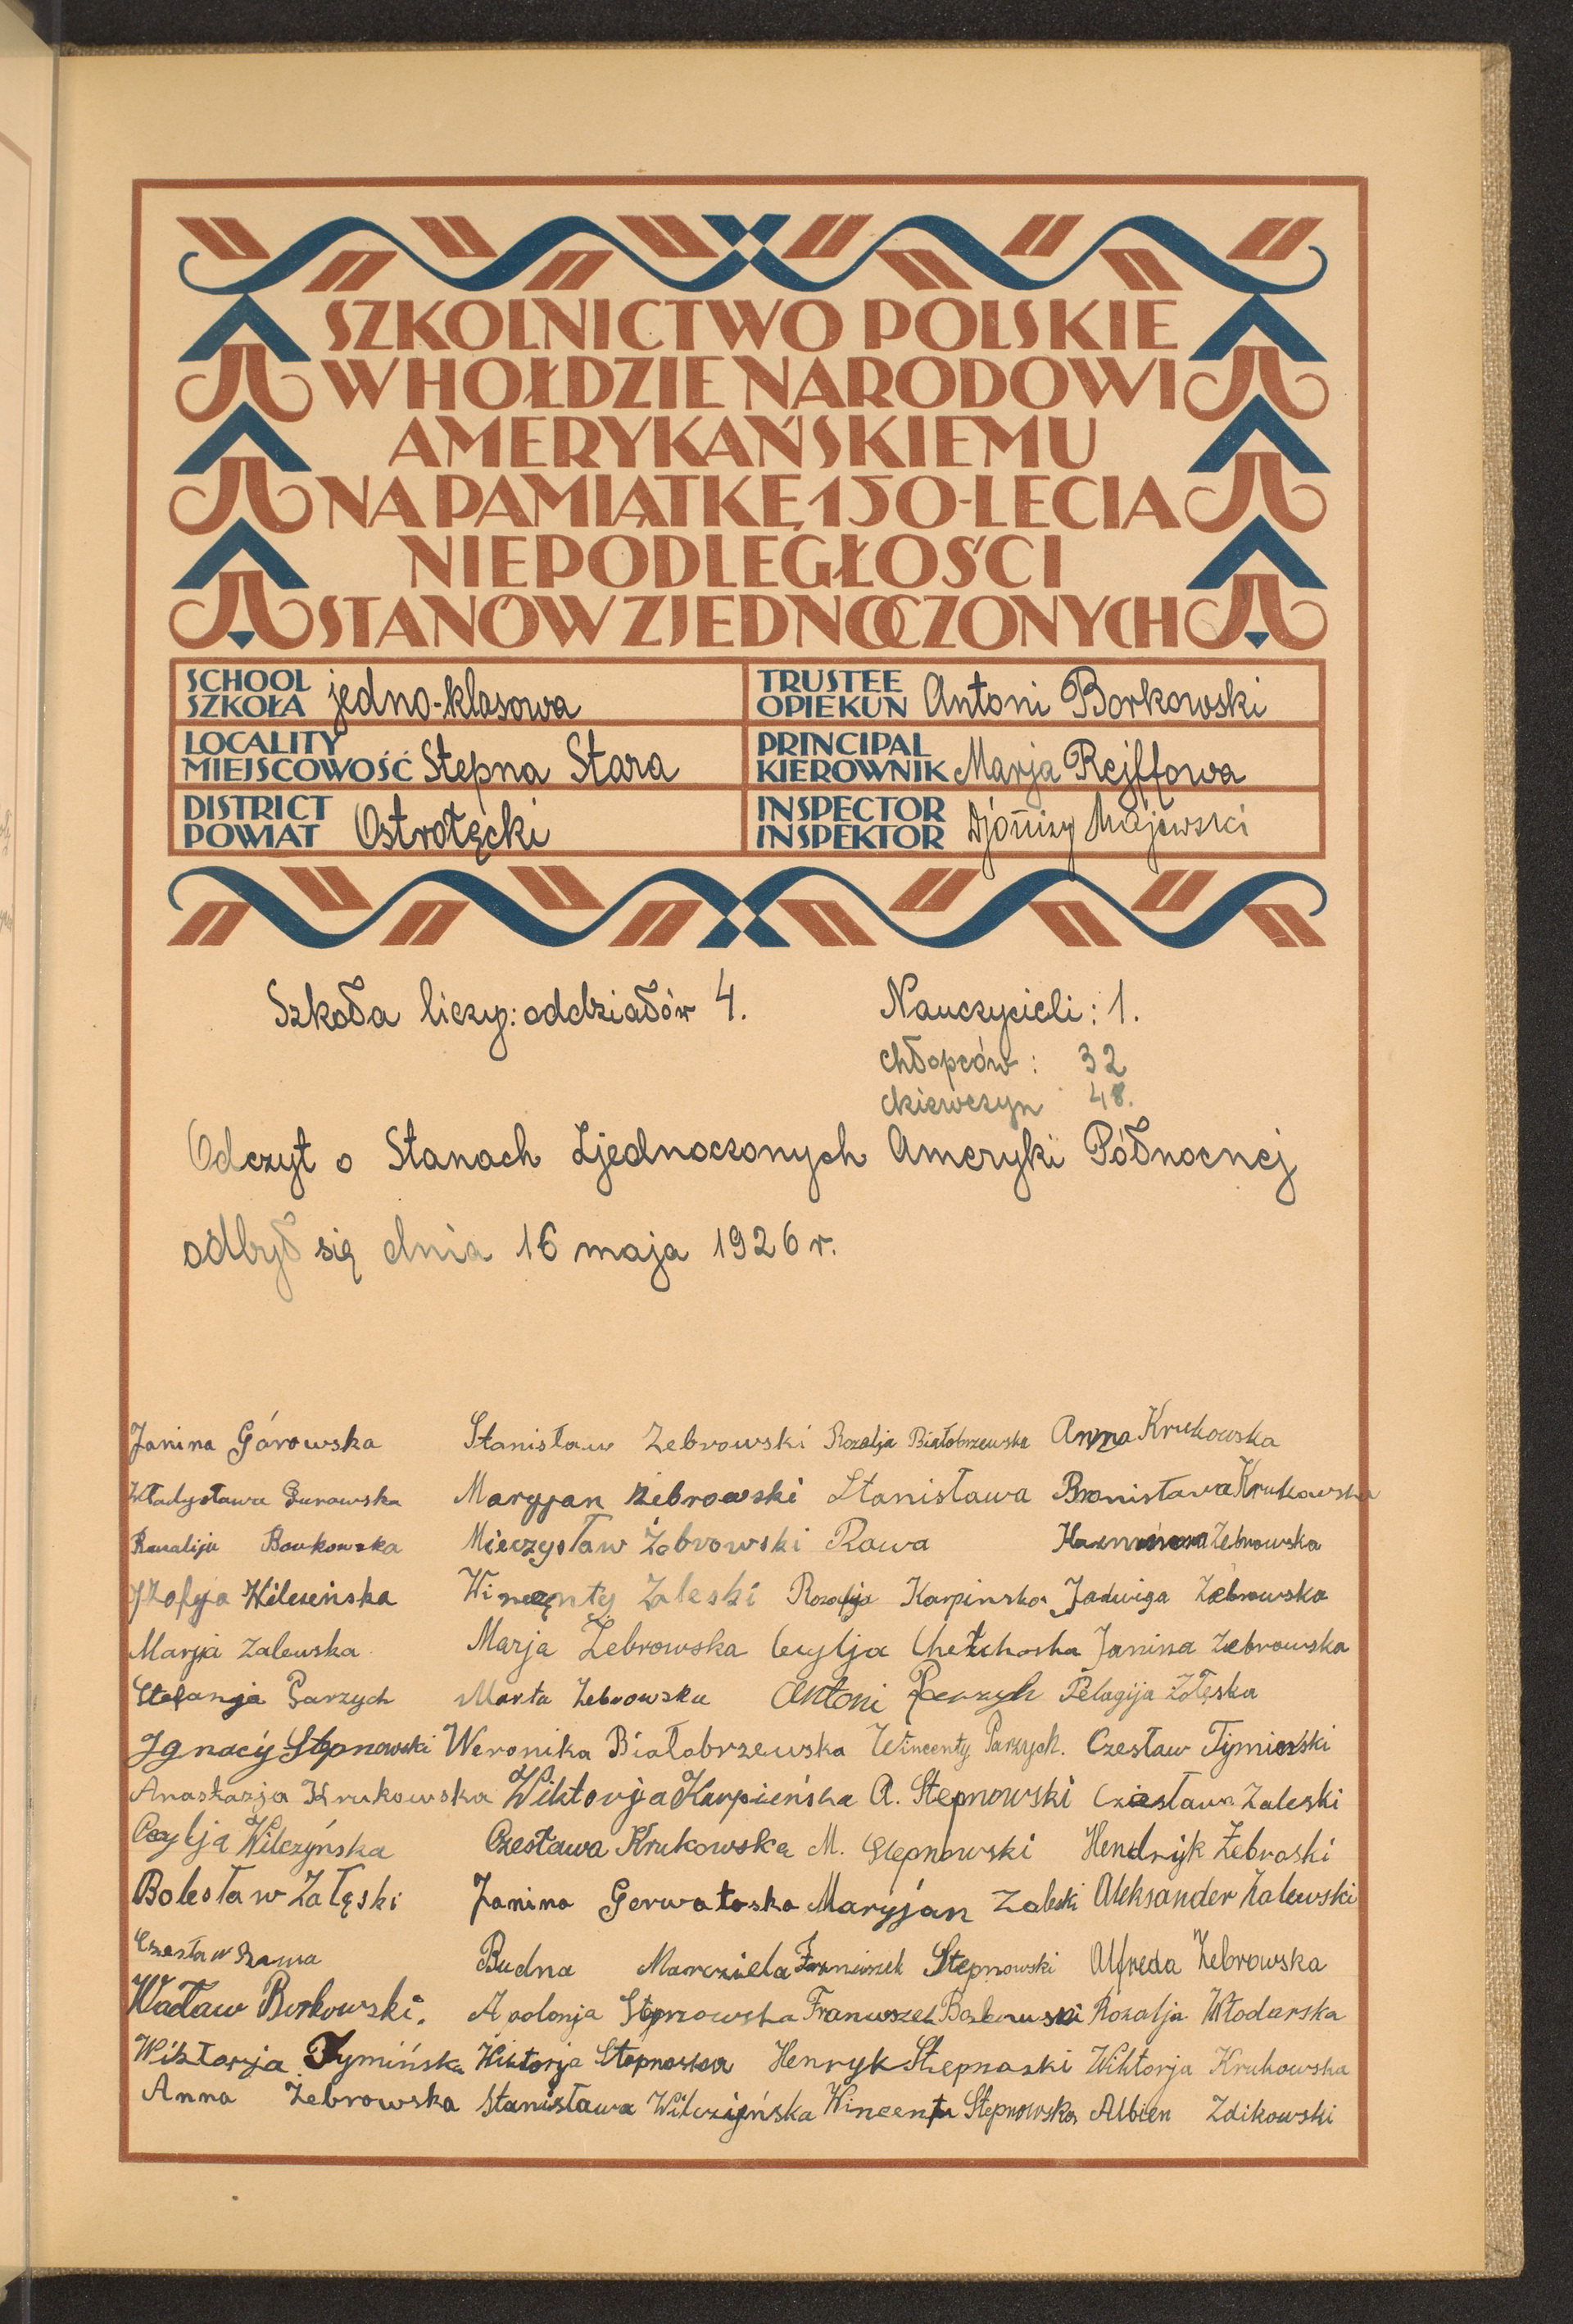 SZKOLNICTWO POLSKIE
W HOŁDZIE NARODOWI
AMERYKAŃSKIEMU
NA PAMIĄTKĘ 150-LECIA
NIEPODLEGŁOŚCI
STANÓW ZJEDNOCZONYCH
SCHOOL
SZKOŁA jedno-klasowa
TRUSTEE
OPIEKUN Antoni Borkowski
LOCALITY
MIEJSCOWOŚĆ Stepna Stara
PRINCIPAL
KIEROWNIK Marja Rejffowa
DISTRICT
POWIAT Ostrołęcki
INSPECTOR
INSPEKTOR Majewski
Szkoła liczy: oddziałów 4. Nauczycieli: 1.
chłopców: 32
dziewczyn 48.
Odczyt o Stanach Zjednoczonych Ameryki Północnej
odbył się dnia 16 maja 1926 r.
Janina Górowska Stanisław Zebrowski Rozalja Białobrzewska Anna Krukowska
Władysława Gurowska Maryjan Żebrowski Stanisława Bronisława Krukowska
Bonkowska Mieczysław Żebrowski Rawa Zebrowska
Zofyja Wileńska Zaleski Rozalja Karpinska Jadwiga Żebrowska
Marja Zalewska Marja Żebrowska Cecylja Janina Zebrowska
Stefanja Parzych Marta Zebrowska Antoni Parzych Pelagija Zołęska
Ignacy Stepnowski Weronika Białobrzewska Wincenty Parzych. Czesław Tyminski
Anastazja Krukowska Wiktorja Karpieńska A. Stepnowski Czesława Zaleski
Cecylja Wilczyńska Czesława Krukowska M. Stepnowski Hendryk Żebroski
Bolesław Załęski Janina Gerwatoska Maryján Zaleski Aleksander Zalewski
Czesław Rawa Budna Marcziela Franciszek Stepnowski Alfreda Żebrowska
Wacław Borkowski. Apolonja Stepnowska Franciszek Borkowski Rozalja Włodarska
Wiktorja Tymińska Wiktorja Stepnoska Henryk Stepnoski Wiktorja Krukowska
Anna Zebrowska Stanisława Wilczyńska Stepnowska Albien Zdikowski